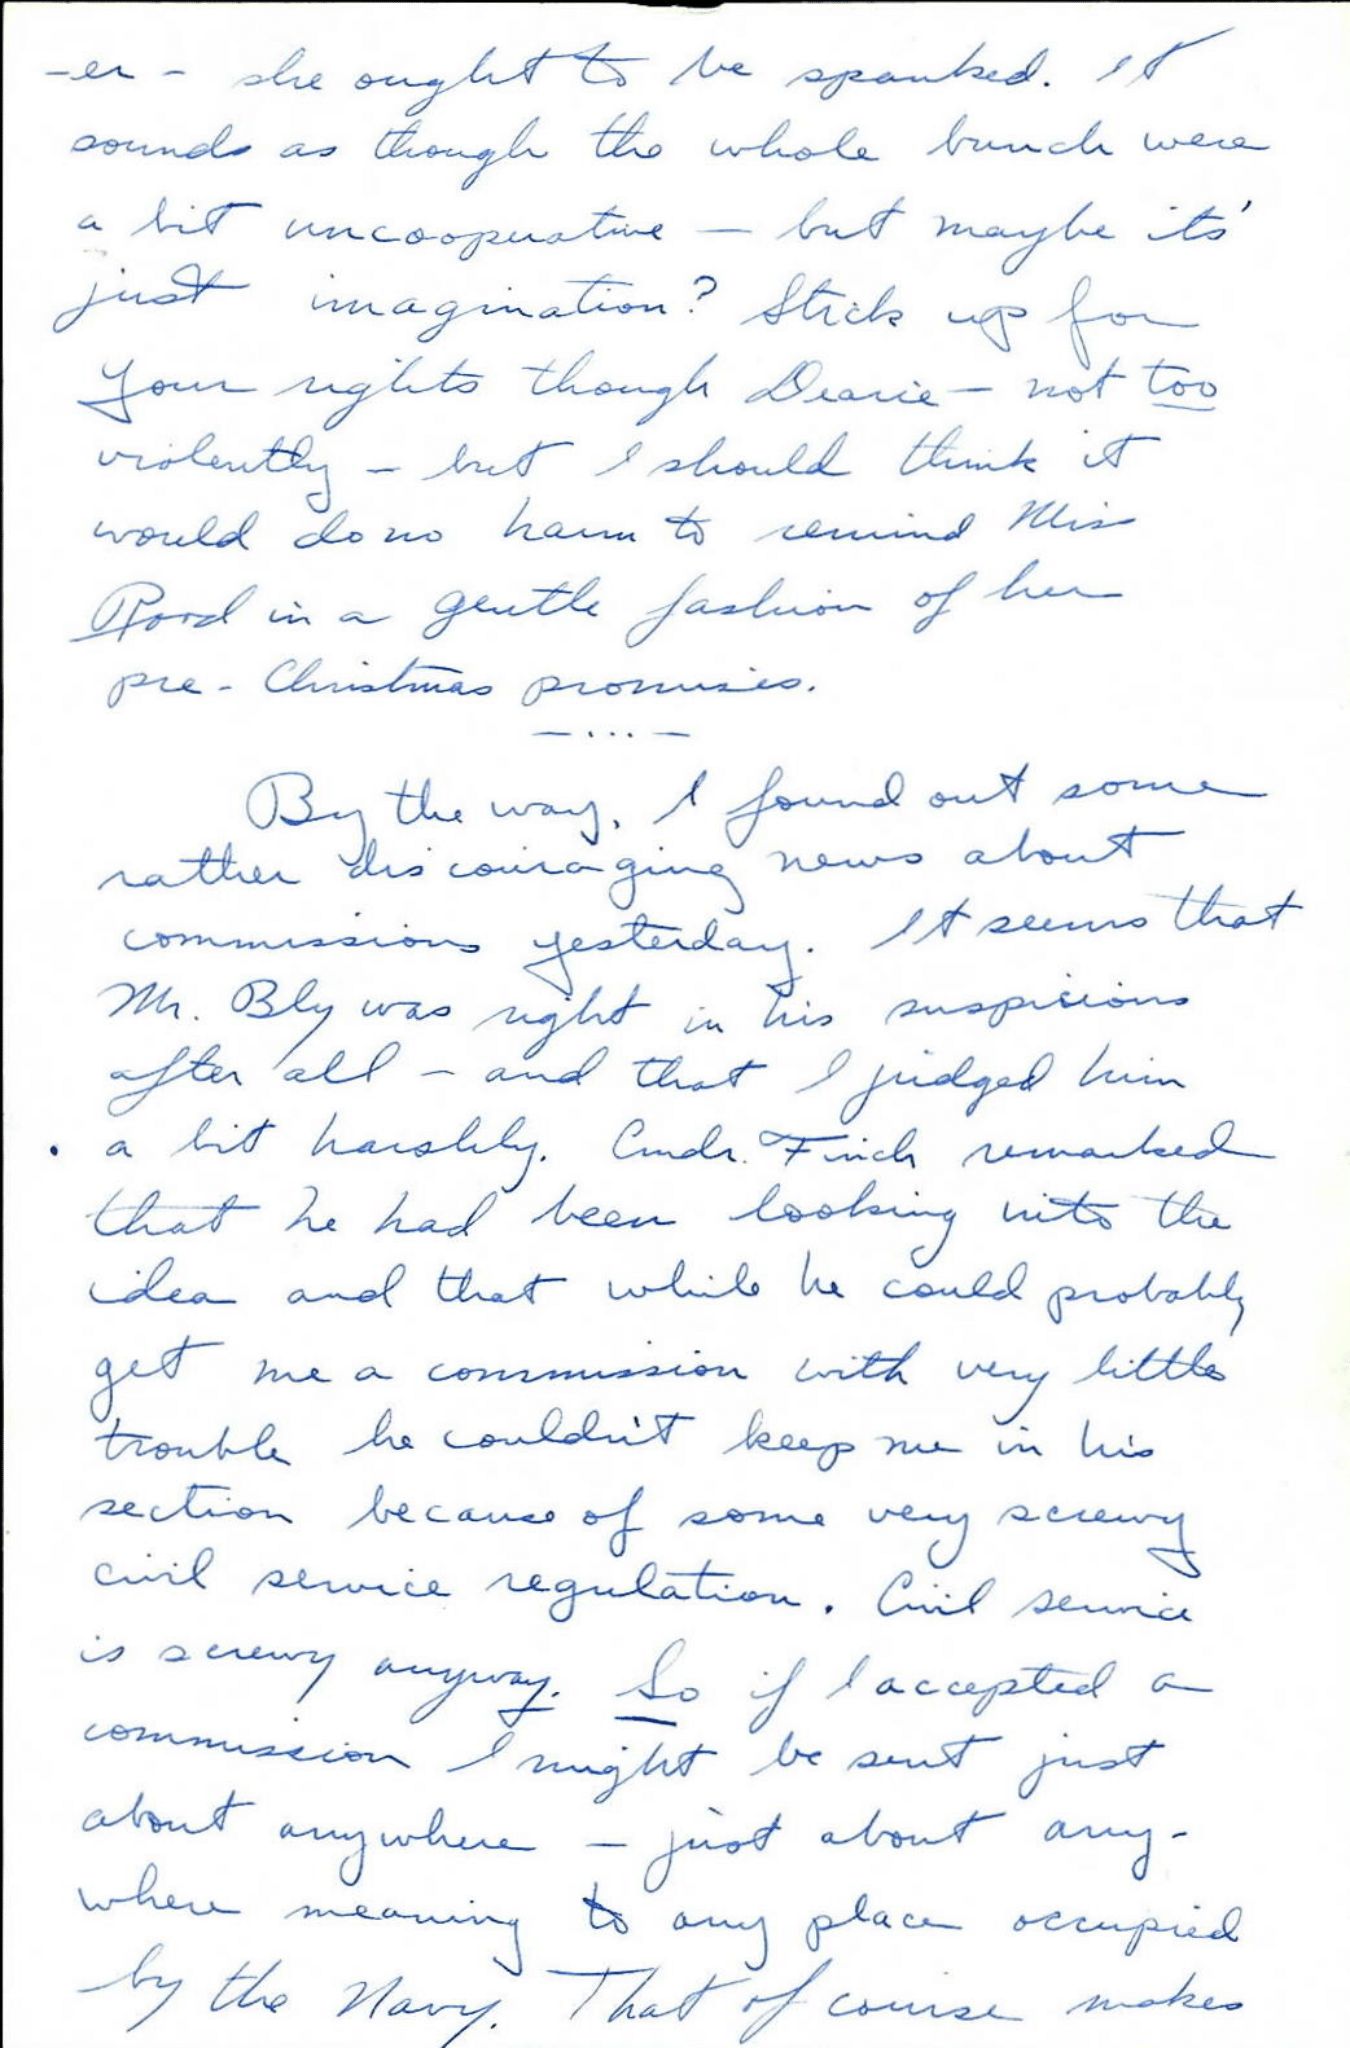 -er - she ought to be spanked. It
sounds as though the whole bunch were
a bit uncooperative — but maybe its'
just imagination? Stick up for
your rights though Dearie — not too
violently — but I should think it
would do no harm to remind Miss
Rood in a gentle fashion of her
pre-Christmas promises.
— ... —
By the way, I found out some
rather discouraging news about
commissions yesterday. It seems that
Mr. Bly was right in his suspicions
after all — and that I judged him
a bit harshly. Cmdr. Finch remarked
that he had been looking into the
idea and that while he could probably
get me a commission with very little
trouble he couldn't keep me in his
section because of some very screwy
civil service regulation. Civil service
is screwy anyway. So if I accepted a
commission I might be sent just
about anywhere — just about any-
where meaning to any place occupied
by the Navy. That of course makes